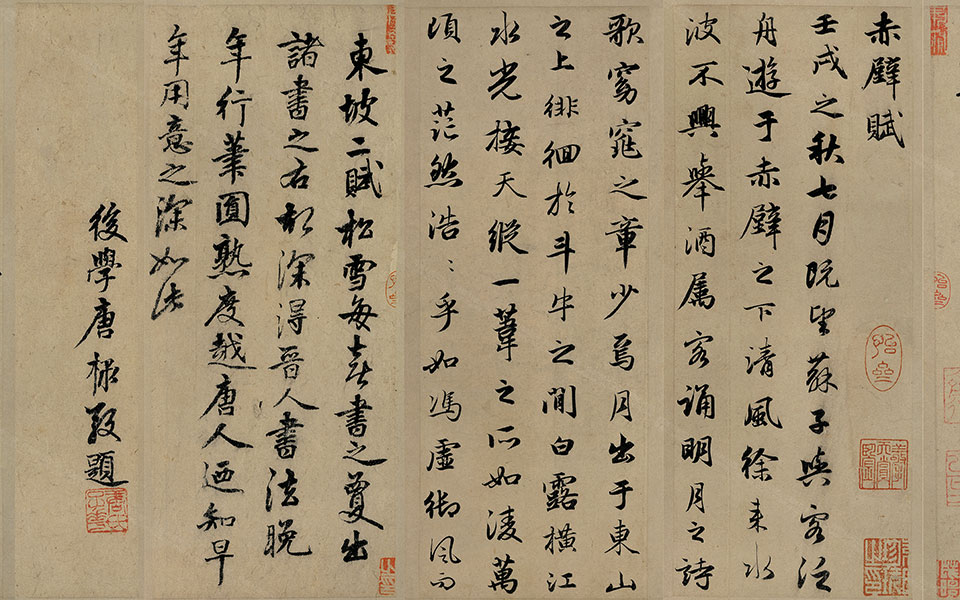 赤壁賦
壬戌之秋七月既望蘇子與客泛
舟遊于赤壁之下清風徐来水
波不興舉酒属客誦明月之詩
歌窈窕之章少焉月出于東山
之上徘徊於斗牛之間白露横江
水光接天縱一葦之所如凌萬
頃之茫然浩〻乎如馮虚御風而
東坡二賦松雪每喜書之夐出
諸書之右初深得晉人書法晚
年行筆圓熟度越唐人迺知早
年用意之深如此
後學唐棣敬題